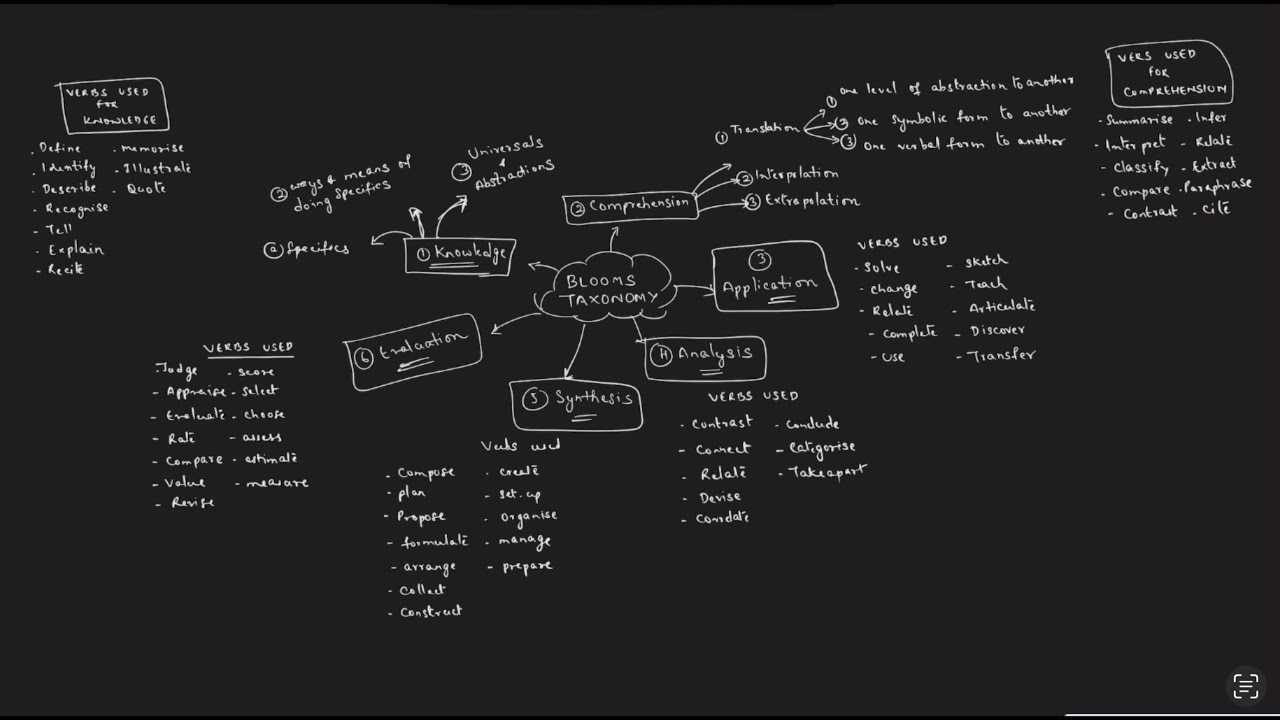 VERBS USED
FOR
KNOWLEDGE
. Define . memorise
. Identify - Illustrate
. Describe . Quote
. Recognise
- Tell
. Explain
. Recite
② ways & means of
doing specifics
③ Universals
&
Abstractions
ⓐ Specifics
① Knowledge
BLOOMS
TAXONOMY
② Comprehension
① Translation
① one level of abstraction to another
② One symbolic form to another
③ One verbal form to another
② Interpolation
③ Extrapolation
VERS USED
FOR
COMPREHENSION
- Summarise . Infer
- Interpret . Relate
- Classify . Extract
. Compare . Paraphrase
. Contrast . Cite
③
Application
VERBS USED
- Solve - Sketch
- change - Teach
- Relate - Articulate
- Complete - Discover
- use - Transfer
④ Analysis
VERBS USED
- Contrast - Conclude
- Connect - Categorise
- Relate - Take apart
- Devise
- Correlate
⑤ Synthesis
Verbs used
- Compose . create
- plan - set-up
- Propose . Organise
- formulate . manage
- arrange - prepare
- Collect
- Construct
⑥ Evaluation
VERBS USED
-Judge - score
- Appraise - select
- Evaluate - choose
- Rate - assess
- Compare - estimate
- Value - measure
- Revise